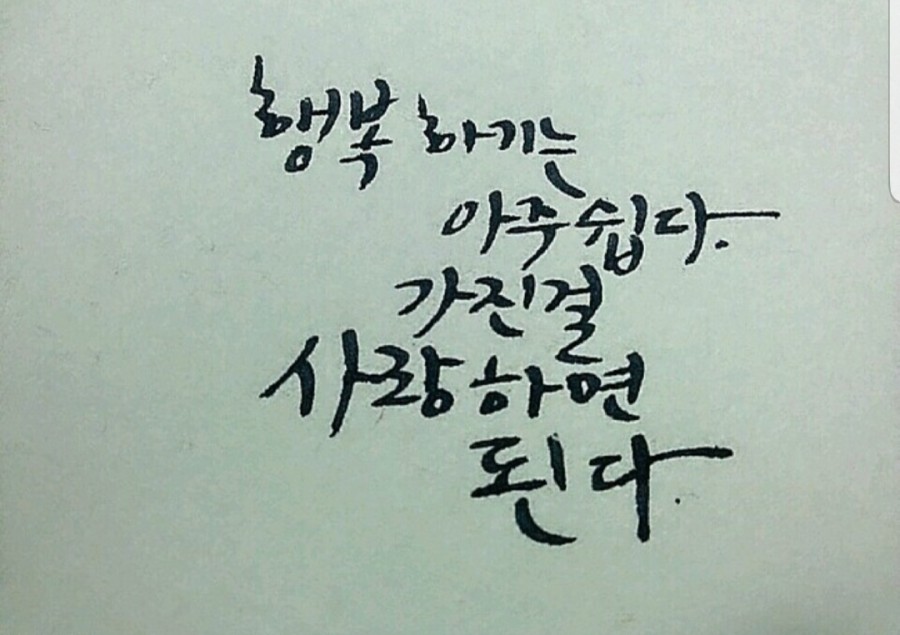 행복 하기는
아주 쉽다.
가진걸
사랑하면
된다.